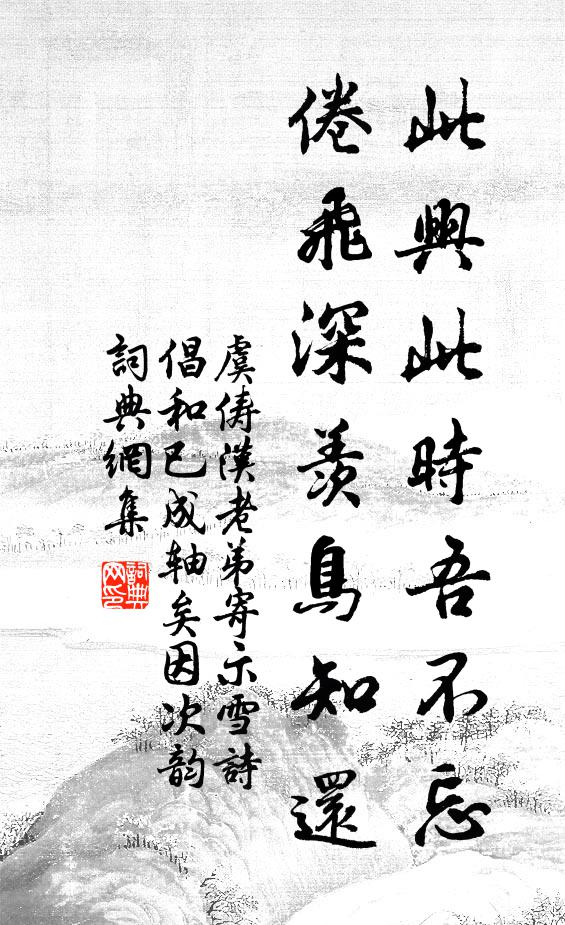 此興此時吾不忘
倦飛深羨鳥知還
虞儔漢老弟寄示雪詩
倡和已成轴矣因次韵
詞典網集
詞典
网印